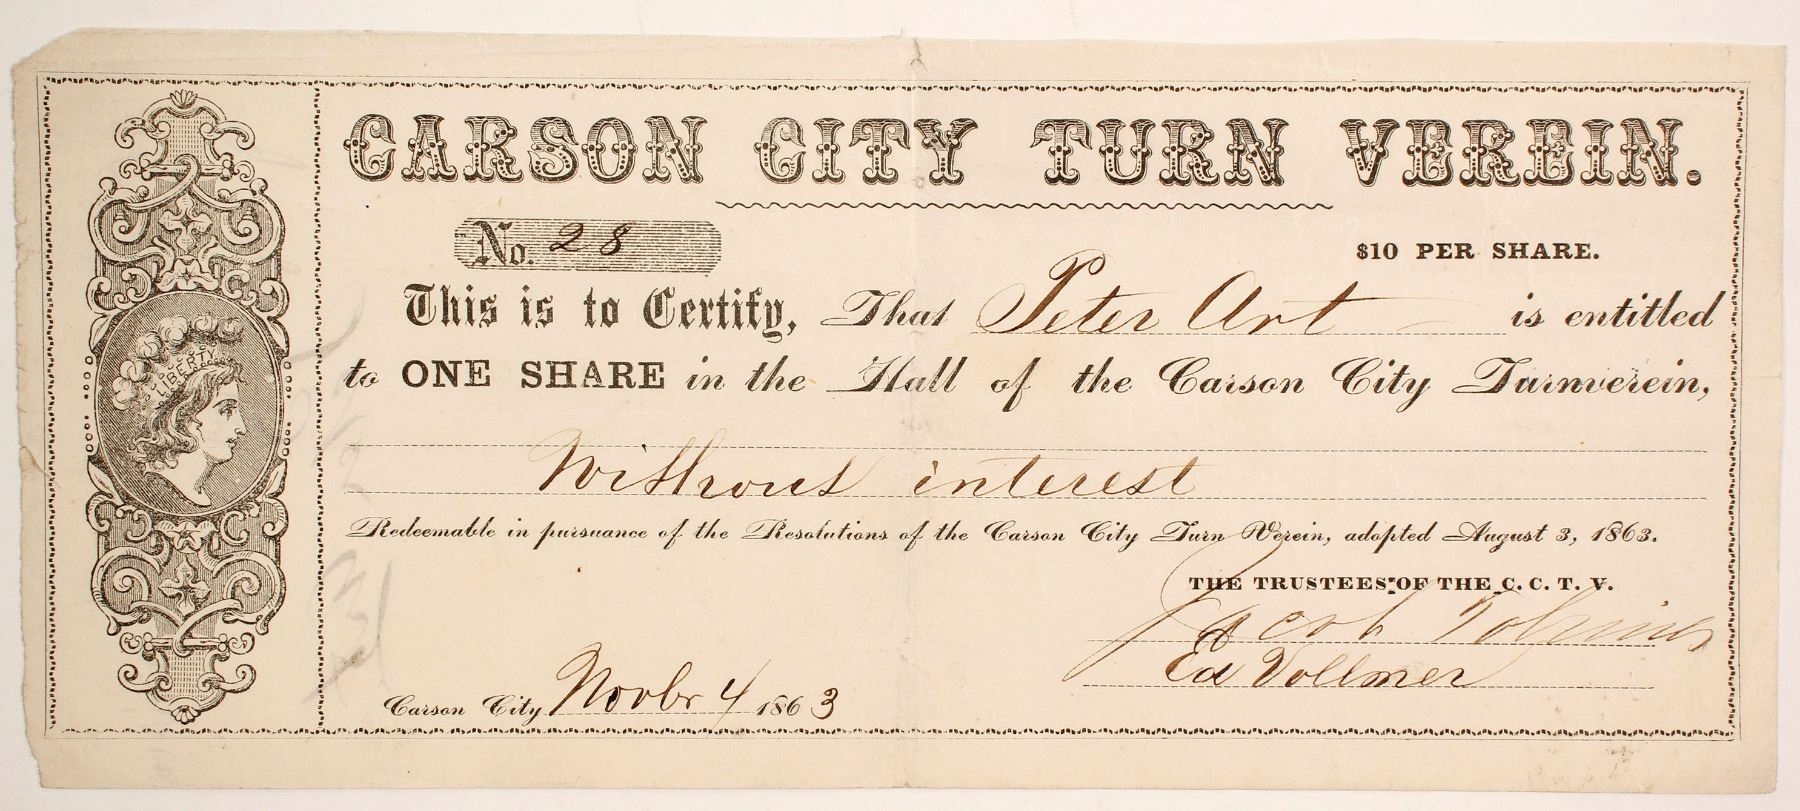 CARSON CITY TURN VEREIN.
No. 28
$10 PER SHARE.
This is to Certify, That Peter Art is entitled
to ONE SHARE in the Hall of the Carson City Turnverein,
Without interest
Redeemable in pursuance of the Resolutions of the Carson City Turn Verein, adopted August 3, 1863.
THE TRUSTEES OF THE C. C. T. V.
Jacob
Ed Vollmer
Carson City Novbr 4 1863
LIBERTY